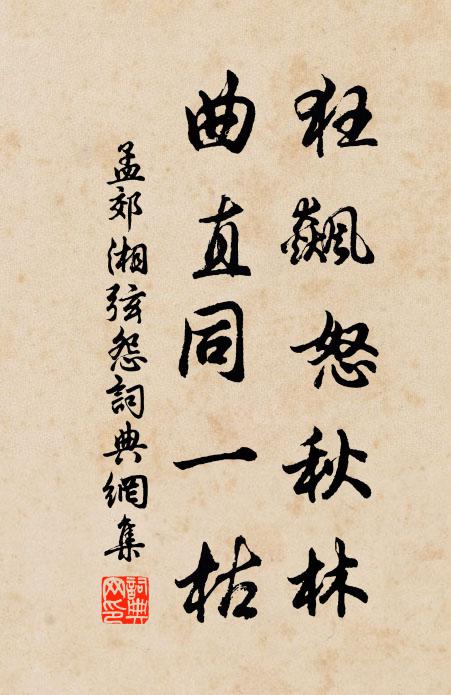 狂飆怒秋林
曲直同一枯
孟郊湘弦怨詞典網集
詞典
网印